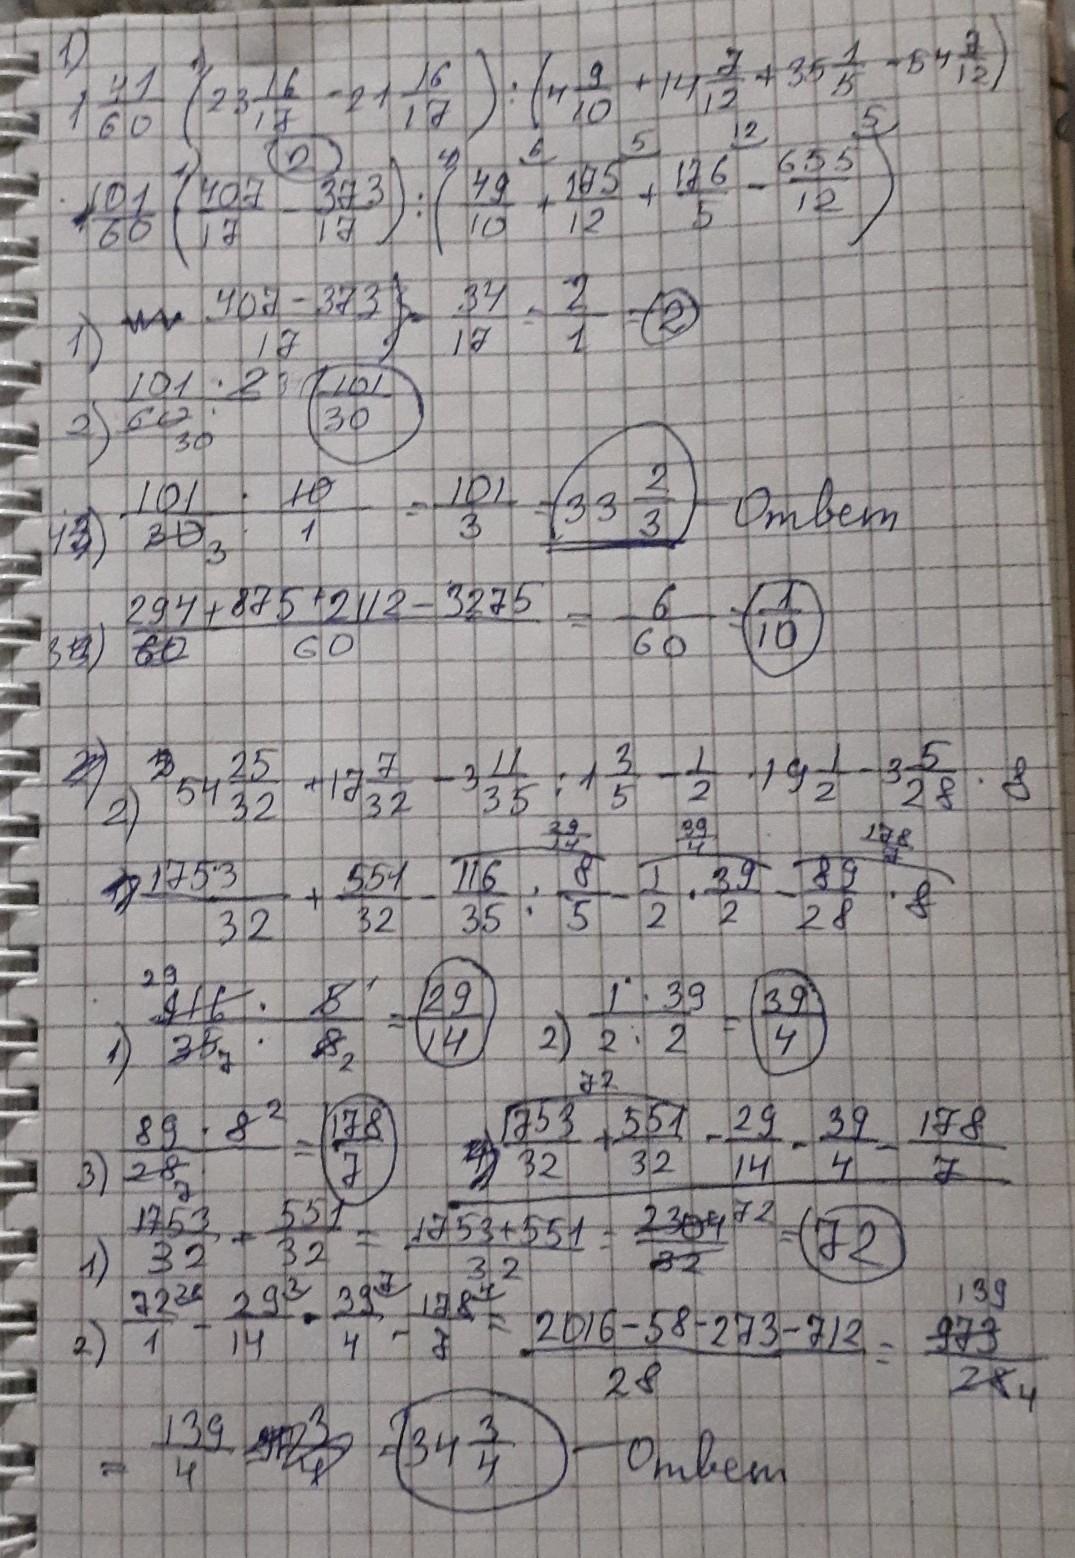 1)
1 41/60 (23 16/17 - 21 16/17) : (4 9/10 + 14 7/12 + 35 1/5 - 54 7/12)
101/60 (407/17 - 373/17) : (49/10 + 175/12 + 176/5 - 655/12)
1) (407 - 373)/17 = 34/17 = 2/1 = 2
2) (101 · 2)/60 30 101/30
4) 101/30 3 · 10/1 = 101/3 = 33 2/3 - Ответ
3) (294 + 875 + 2112 - 3275)/60 = 6/60 = 1/10
2) 54 25/32 + 17 7/32 - 3 11/35 : 1 3/5 - 1/2 · 19 1/2 - 3 5/28 · 8
29/14 39/4 178/7
1753/32 + 551/32 - 116/35 : 8/5 - 1/2 · 39/2 - 89/28 · 8
1) 29 116/35 7 · 5 1/8 2 = 29/14 2) (1 · 39)/(2 · 2) = 39/4
72
3) (89 · 8 2)/28 7 = 178/7 1753/32 + 551/32 - 29/14 - 39/4 - 178/7
1) 1753/32 + 551/32 = (1753 + 551)/32 = 2304/32 72 = 72
2) 72/1 - 29/14 - 39 7/4 - 178/7 = (2016 - 58 - 273 - 712)/28 = 973 139/28 4
= 139/4 = 34 3/4 - Ответ